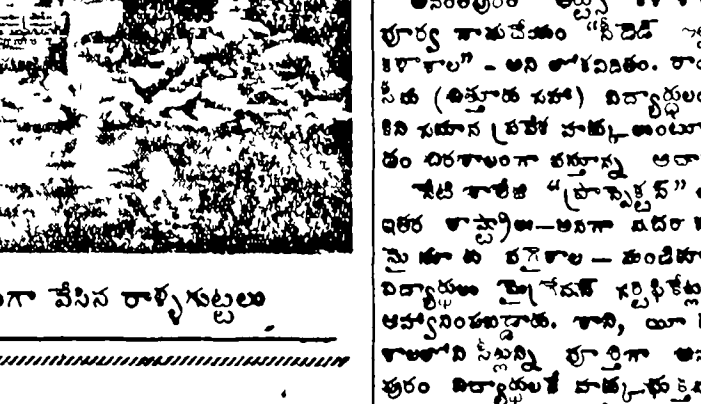 గా వేసిన రాళ్ళగుట్టలు
అనంతపురం ఆర్ట్సు
పూర్వ నామధేయం "సీడెడ్
కళాశాల" - అని లోకవిదితం.
సీమ (చిత్తూరు సహా) విద్యార్థుల
కిది సమాన ప్రవేశ హక్కు అంటూ
డం చిరకాలంగా వస్తూన్న
నేటి కాలేజి "ప్రాస్పెక్టస్"
ఇతర రాష్ట్రాల—అనగా
మైసూరు వగైరాల — నుండికూ
విద్యార్థులు మైగ్రేషన్ సర్టిఫికేట్లు
ఆహ్వానింపబడ్డారు. కాని, యీ
శాలలోని సీట్లన్ని పూర్తిగా
పురం విద్యార్థులకే హక్కుభుక్త